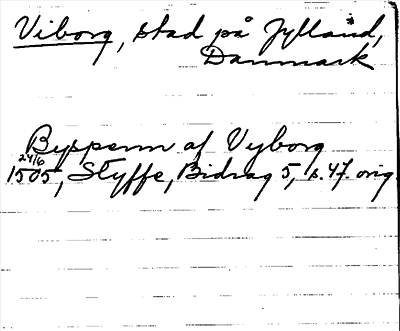 Viborg, stad på Jylland,
Danmark
Byppenn af Vyborg
24/6
1505, Styffe, Bidrag 5, s. 47. orig.